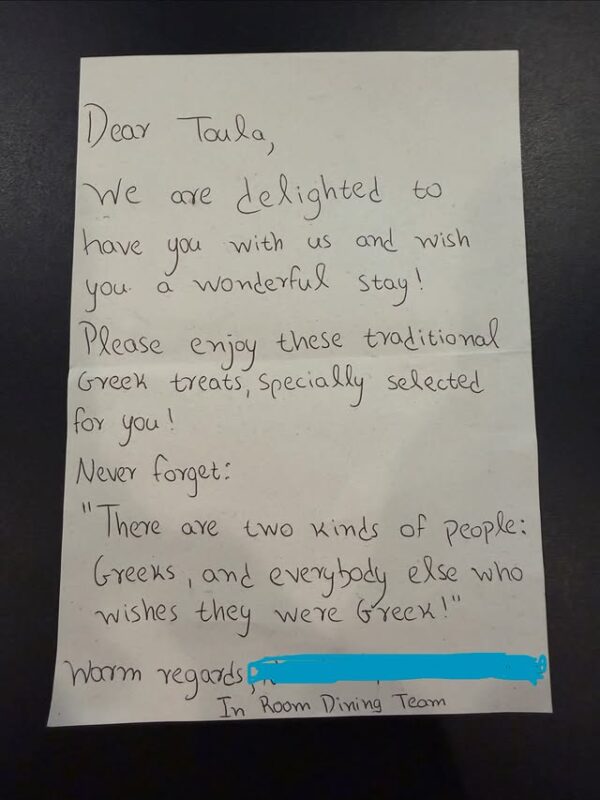 Dear Toula,
We are delighted to
have you with us and wish
you a wonderful stay!
Please enjoy these traditional
Greek treats, specially selected
for you!
Never forget:
"There are two kinds of people:
Greeks, and everybody else who
wishes they were Greek!"
Warm regards,
In Room Dining Team